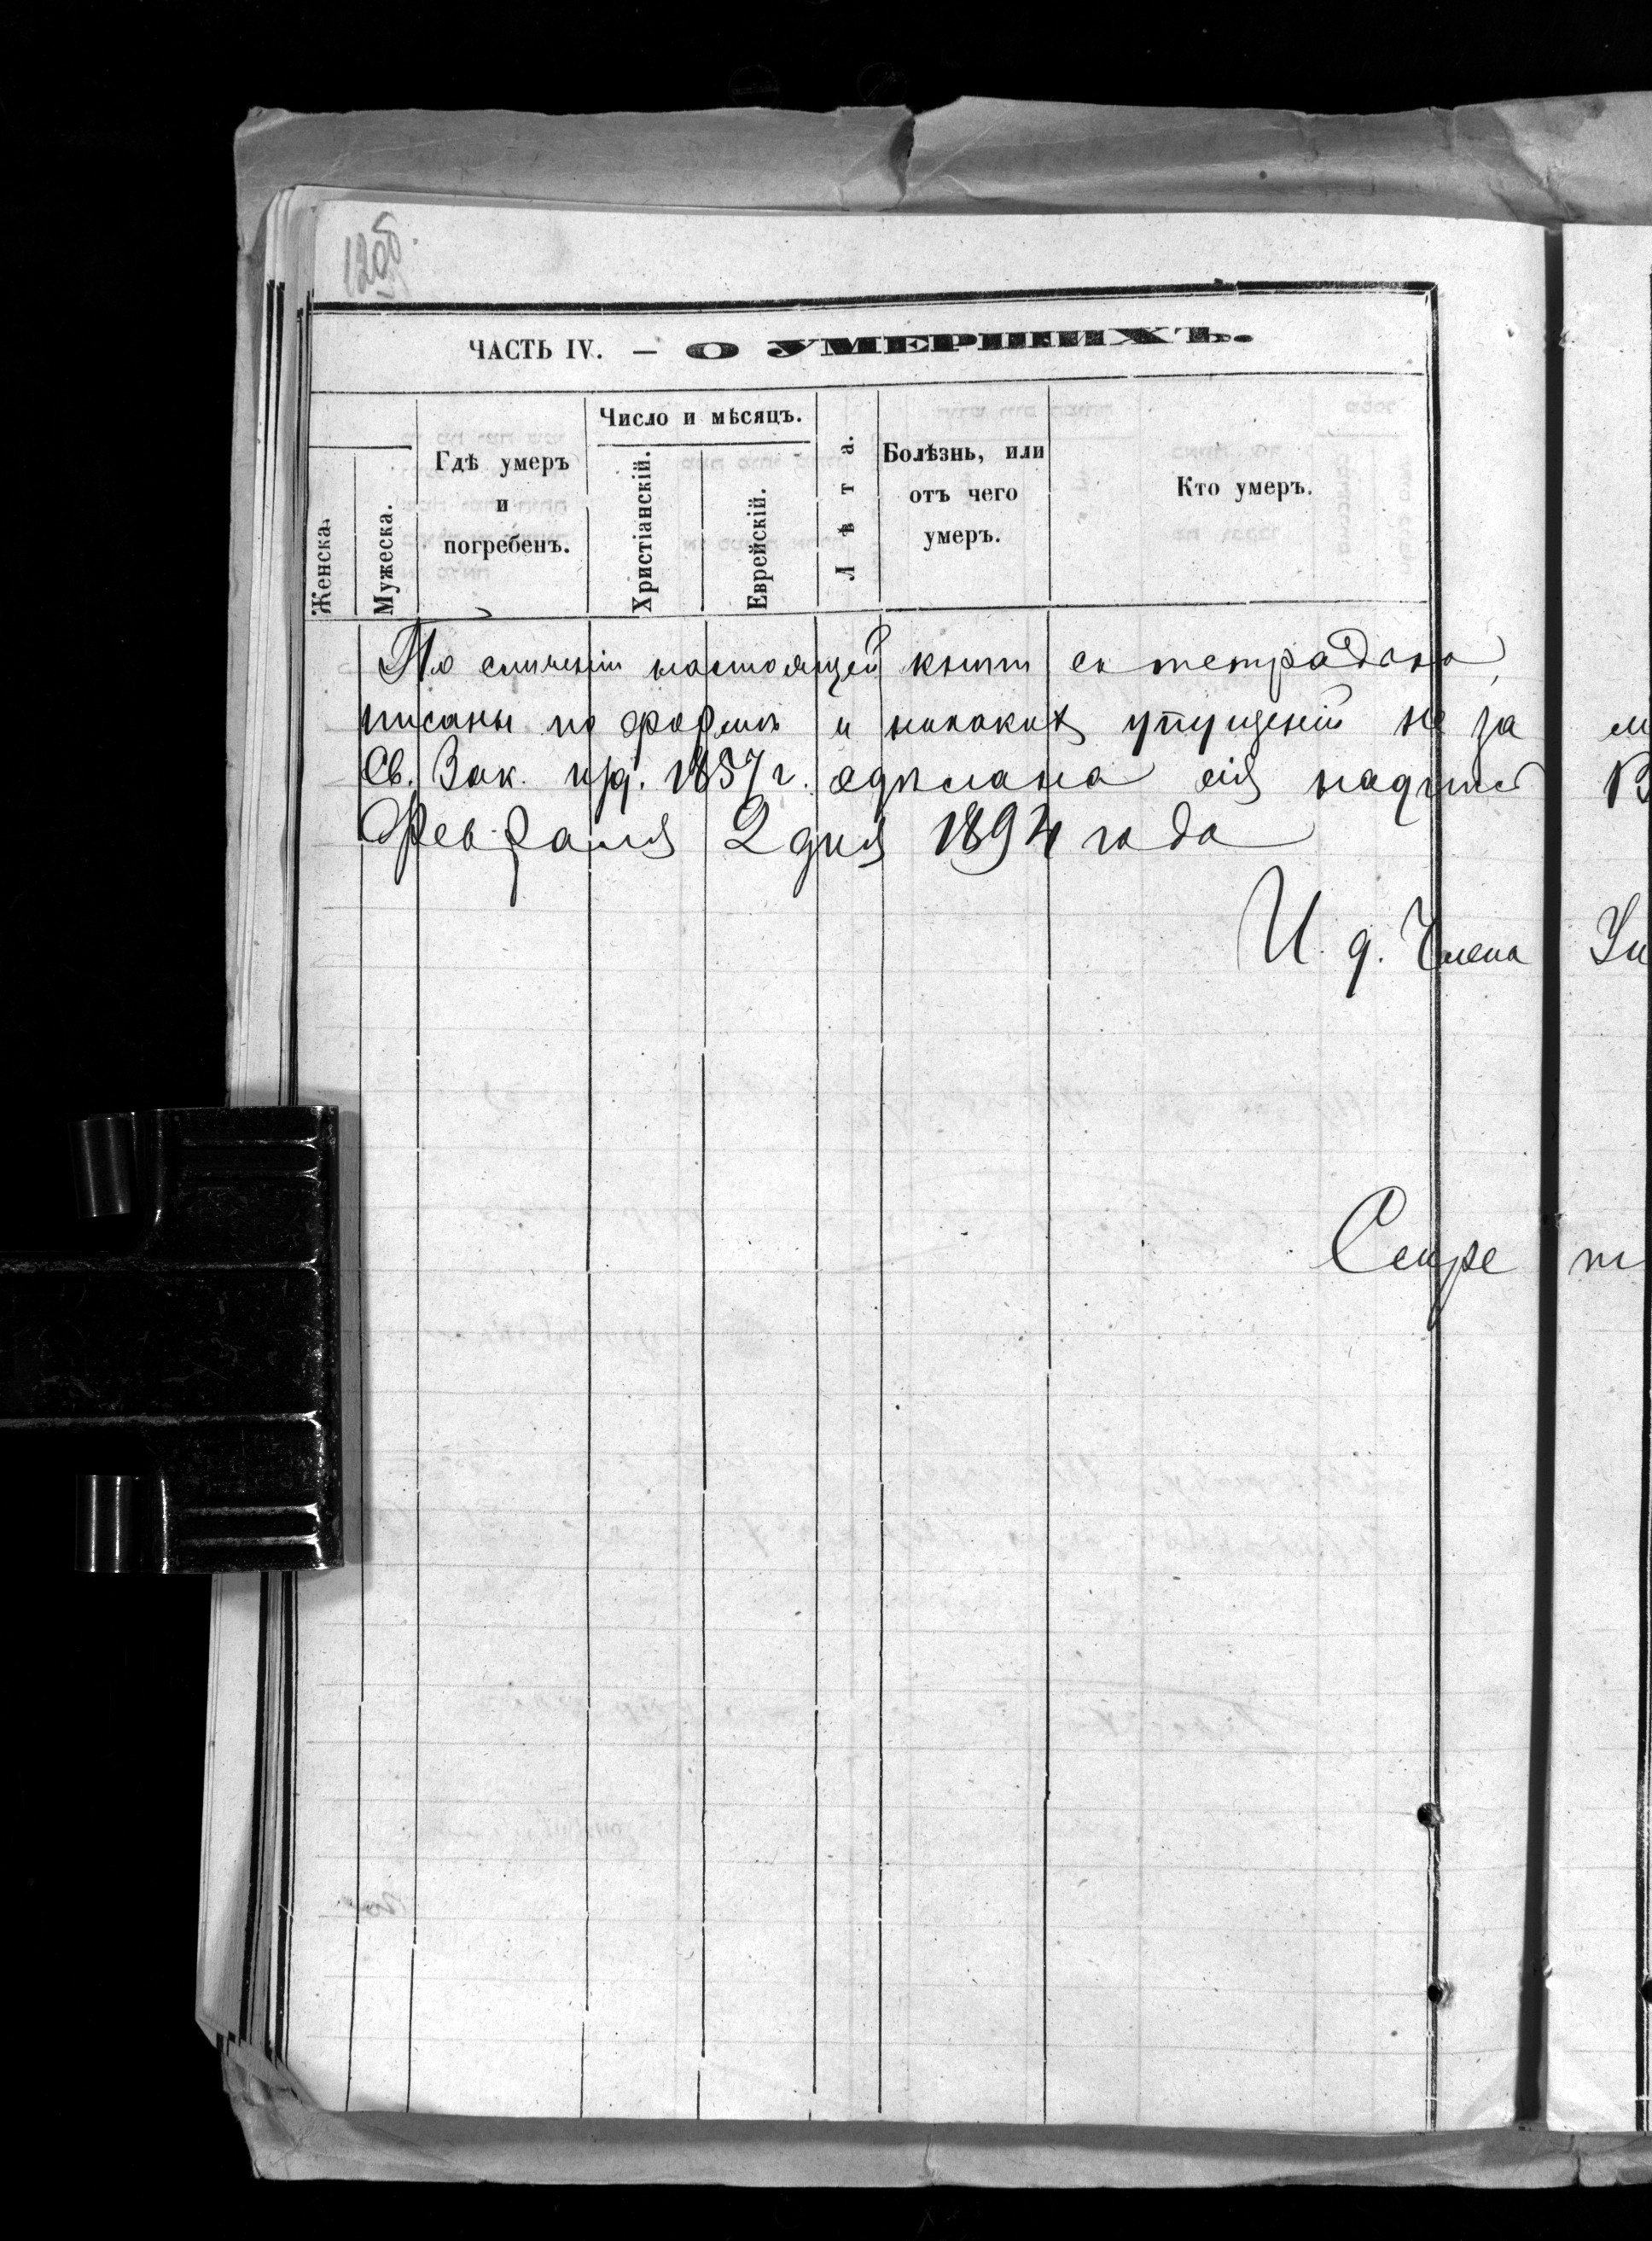 120об
ЧАСТЬ IV. — О УМЕРШИХЪ.
Женска.
Мужеска.
Гдѣ умеръ
и
погребенъ.
Число и мѣсяцъ.
Христіанскій.
Еврейскій.
Лѣта.
Болѣзнь, или
отъ чего
умеръ.
Кто умеръ.
По сличеніи настоящей книги съ тетрадью,
писаны по формѣ и никакихъ упущеній не за м
Св. Зак. изд. 1857 г. сдѣлана сія надпись В
Февраля 2 дня 1894 года
И. д. Члена Уп
Секре т